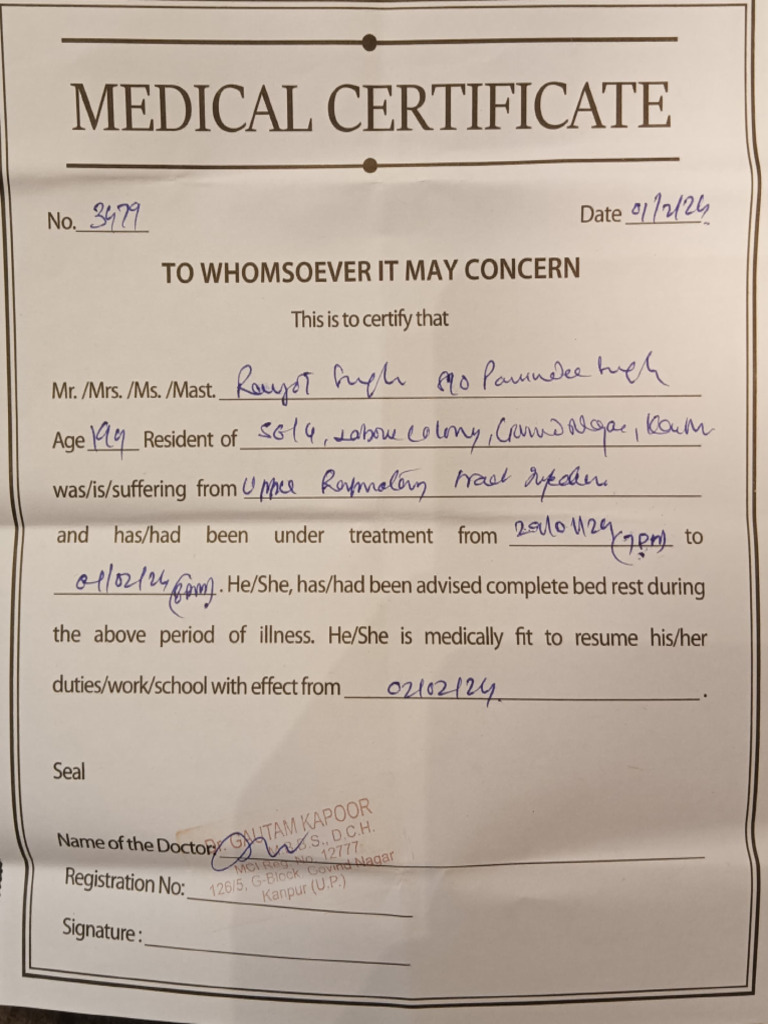 MEDICAL CERTIFICATE
No. 3479 Date 01/2/24
TO WHOMSOEVER IT MAY CONCERN
This is to certify that
Mr. /Mrs. /Ms. /Mast. Singh S/O Singh
Age 19y Resident of Labour Colony, Govind Nagar,
was/is/suffering from Upper Respiratory tract Infection
and has/had been under treatment from /01/24 (7PM) to
01/02/24 . He/She, has/had been advised complete bed rest during
the above period of illness. He/She is medically fit to resume his/her
duties/work/school with effect from 02/02/24 .
Seal
Name of the Doctor: Dr. GAUTAM KAPOOR
M.B.B.S., D.C.H.
MCI Reg. No. 12777
126/5, G-Block, Govind Nagar
Kanpur (U.P.)
Registration No:
Signature :